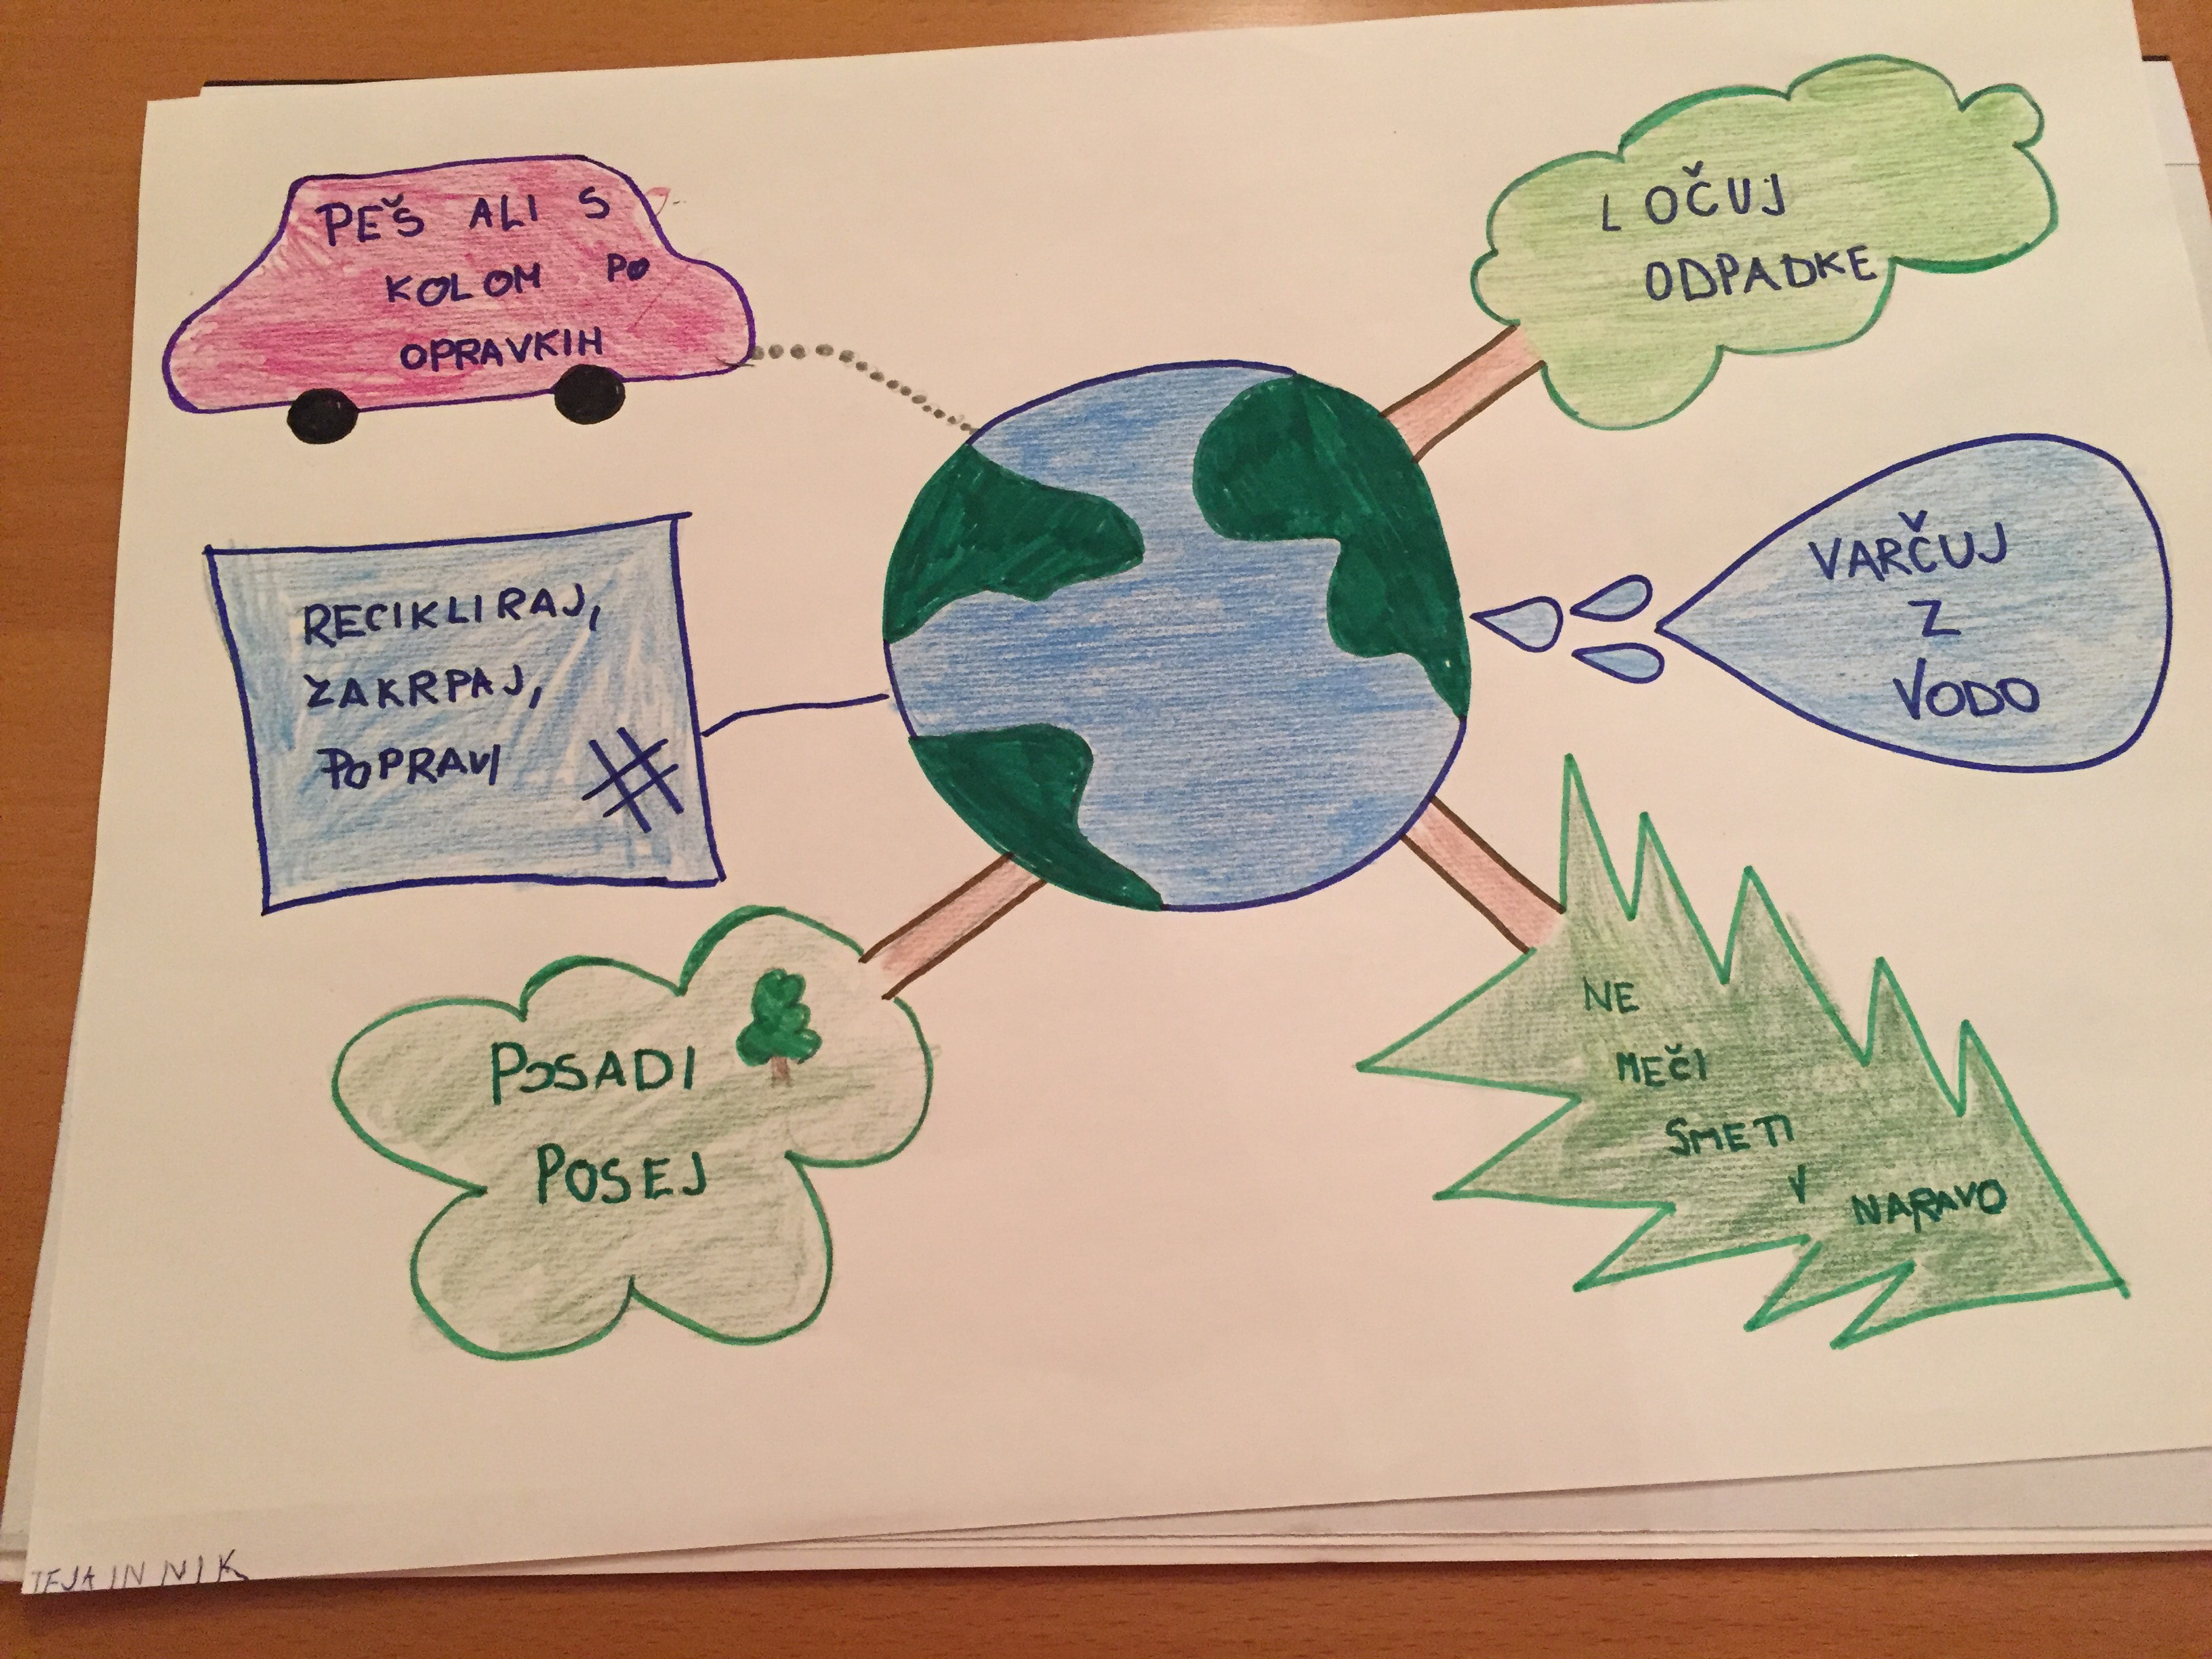 PEŠ ALI S
KOLOM PO
OPRAVKIH
LOČUJ
ODPADKE
RECIKLIRAJ,
ZAKRPAJ,
POPRAVI
VARČUJ
Z
VODO
POSADI
POSEJ
NE
MEČI
SMETI
V NARAVO
TEJA IN NIK